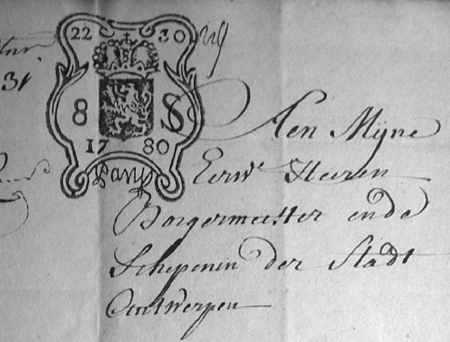 22 30
31
8 S
17 80
Aen Mijne
Eerwe Heeren
Borgermeester ende
Schepenen der Stadt
Antwerpen